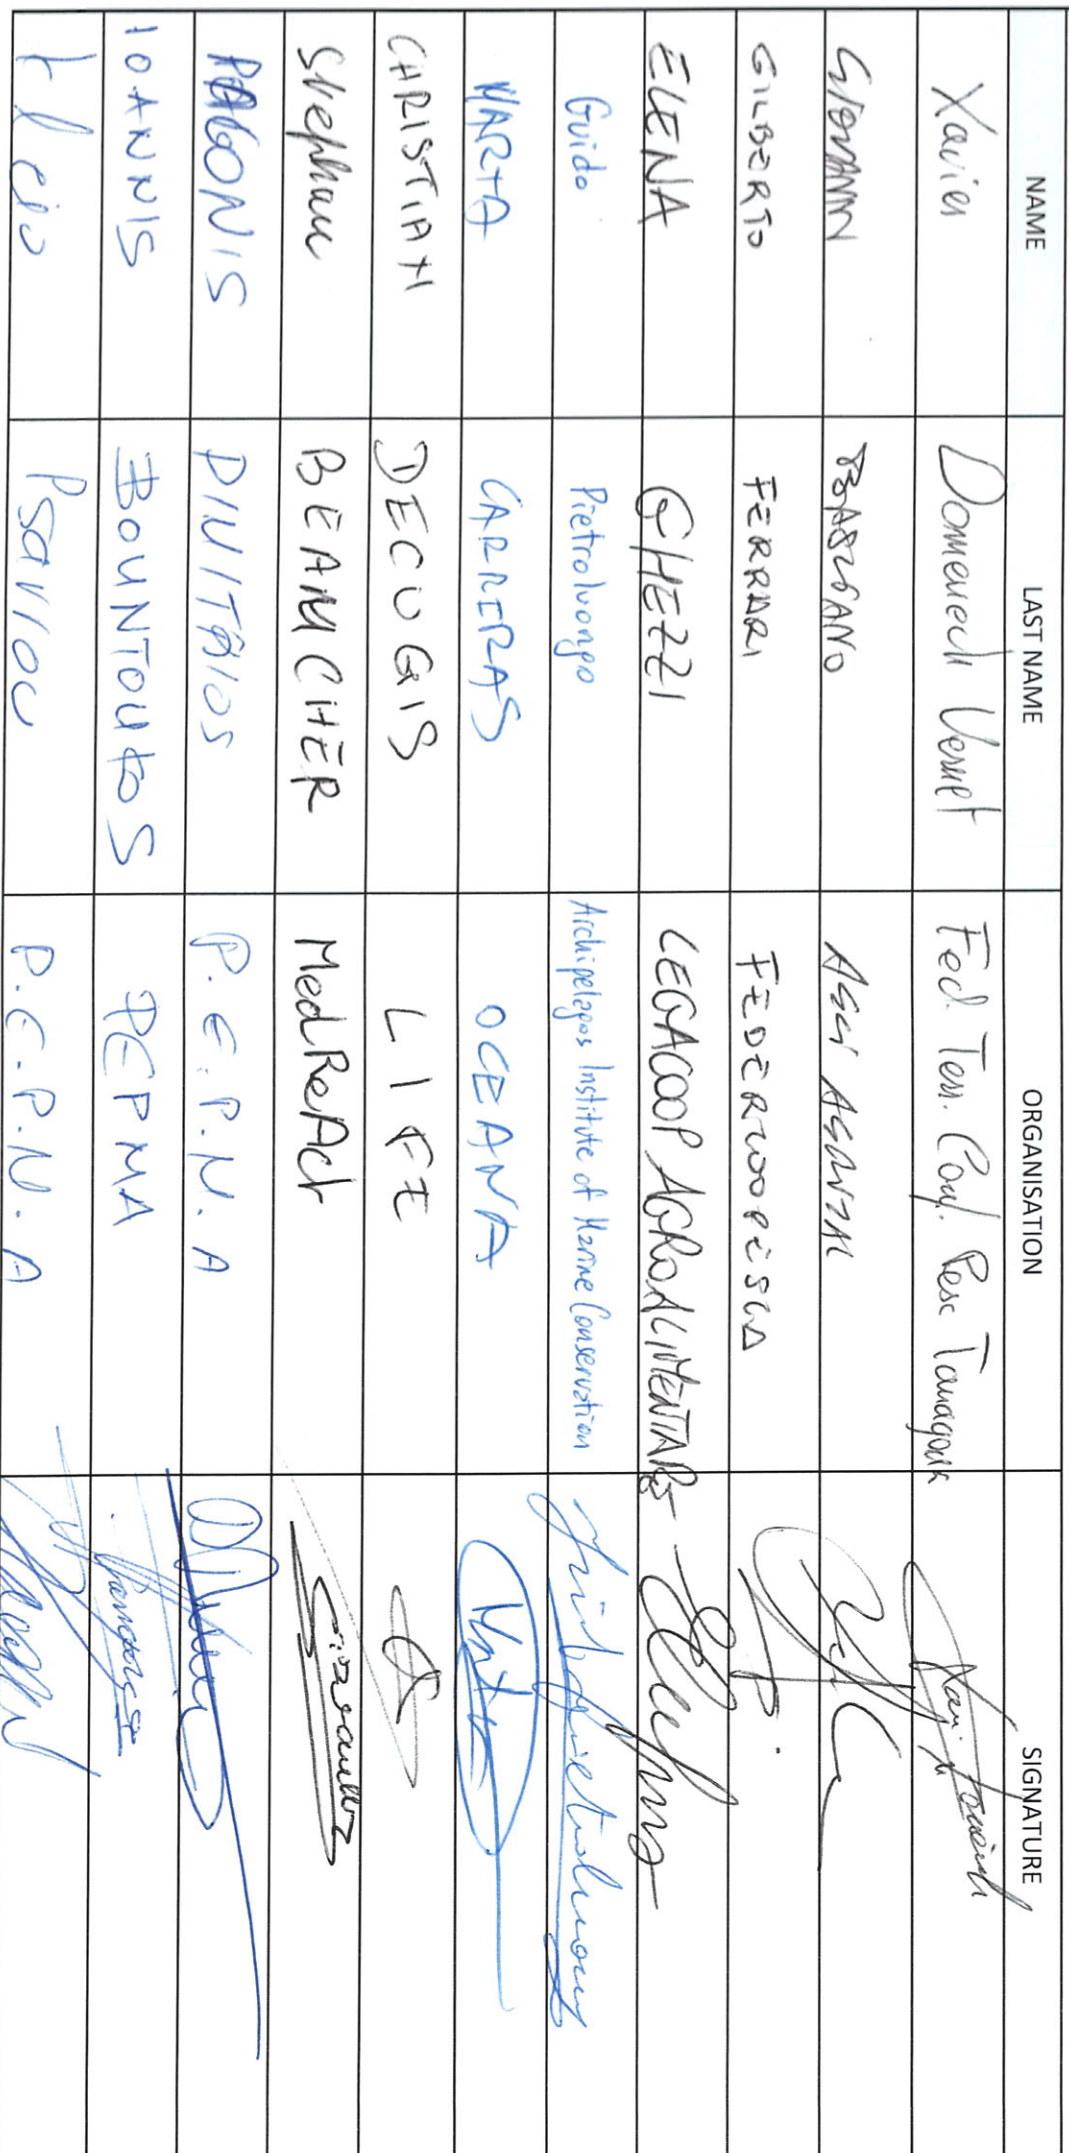 NAME LAST NAME ORGANISATION SIGNATURE
Xavier Domenech Vernet Fed. Terr. Conf. Pesc Tarragona
GIOVANNI BASCIANO AGCI AGRITAL
GILBERTO FERRARI FEDERCOOPESCA
ELENA GHEZZI LEGACOOP AGROALIMENTARE
Guido Pietroluongo Archipelagos Institute of Marine Conservation
MARTA CARRERAS OCEANA
CHRISTIAN DECUGIS LIFE
Stephan BEAUCHER MedReAct
PAGONIS DIMITRIOS P.E.P.M.A
IOANNIS BOUNTOUKOS PEPMA
Psarrou P.E.P.M.A